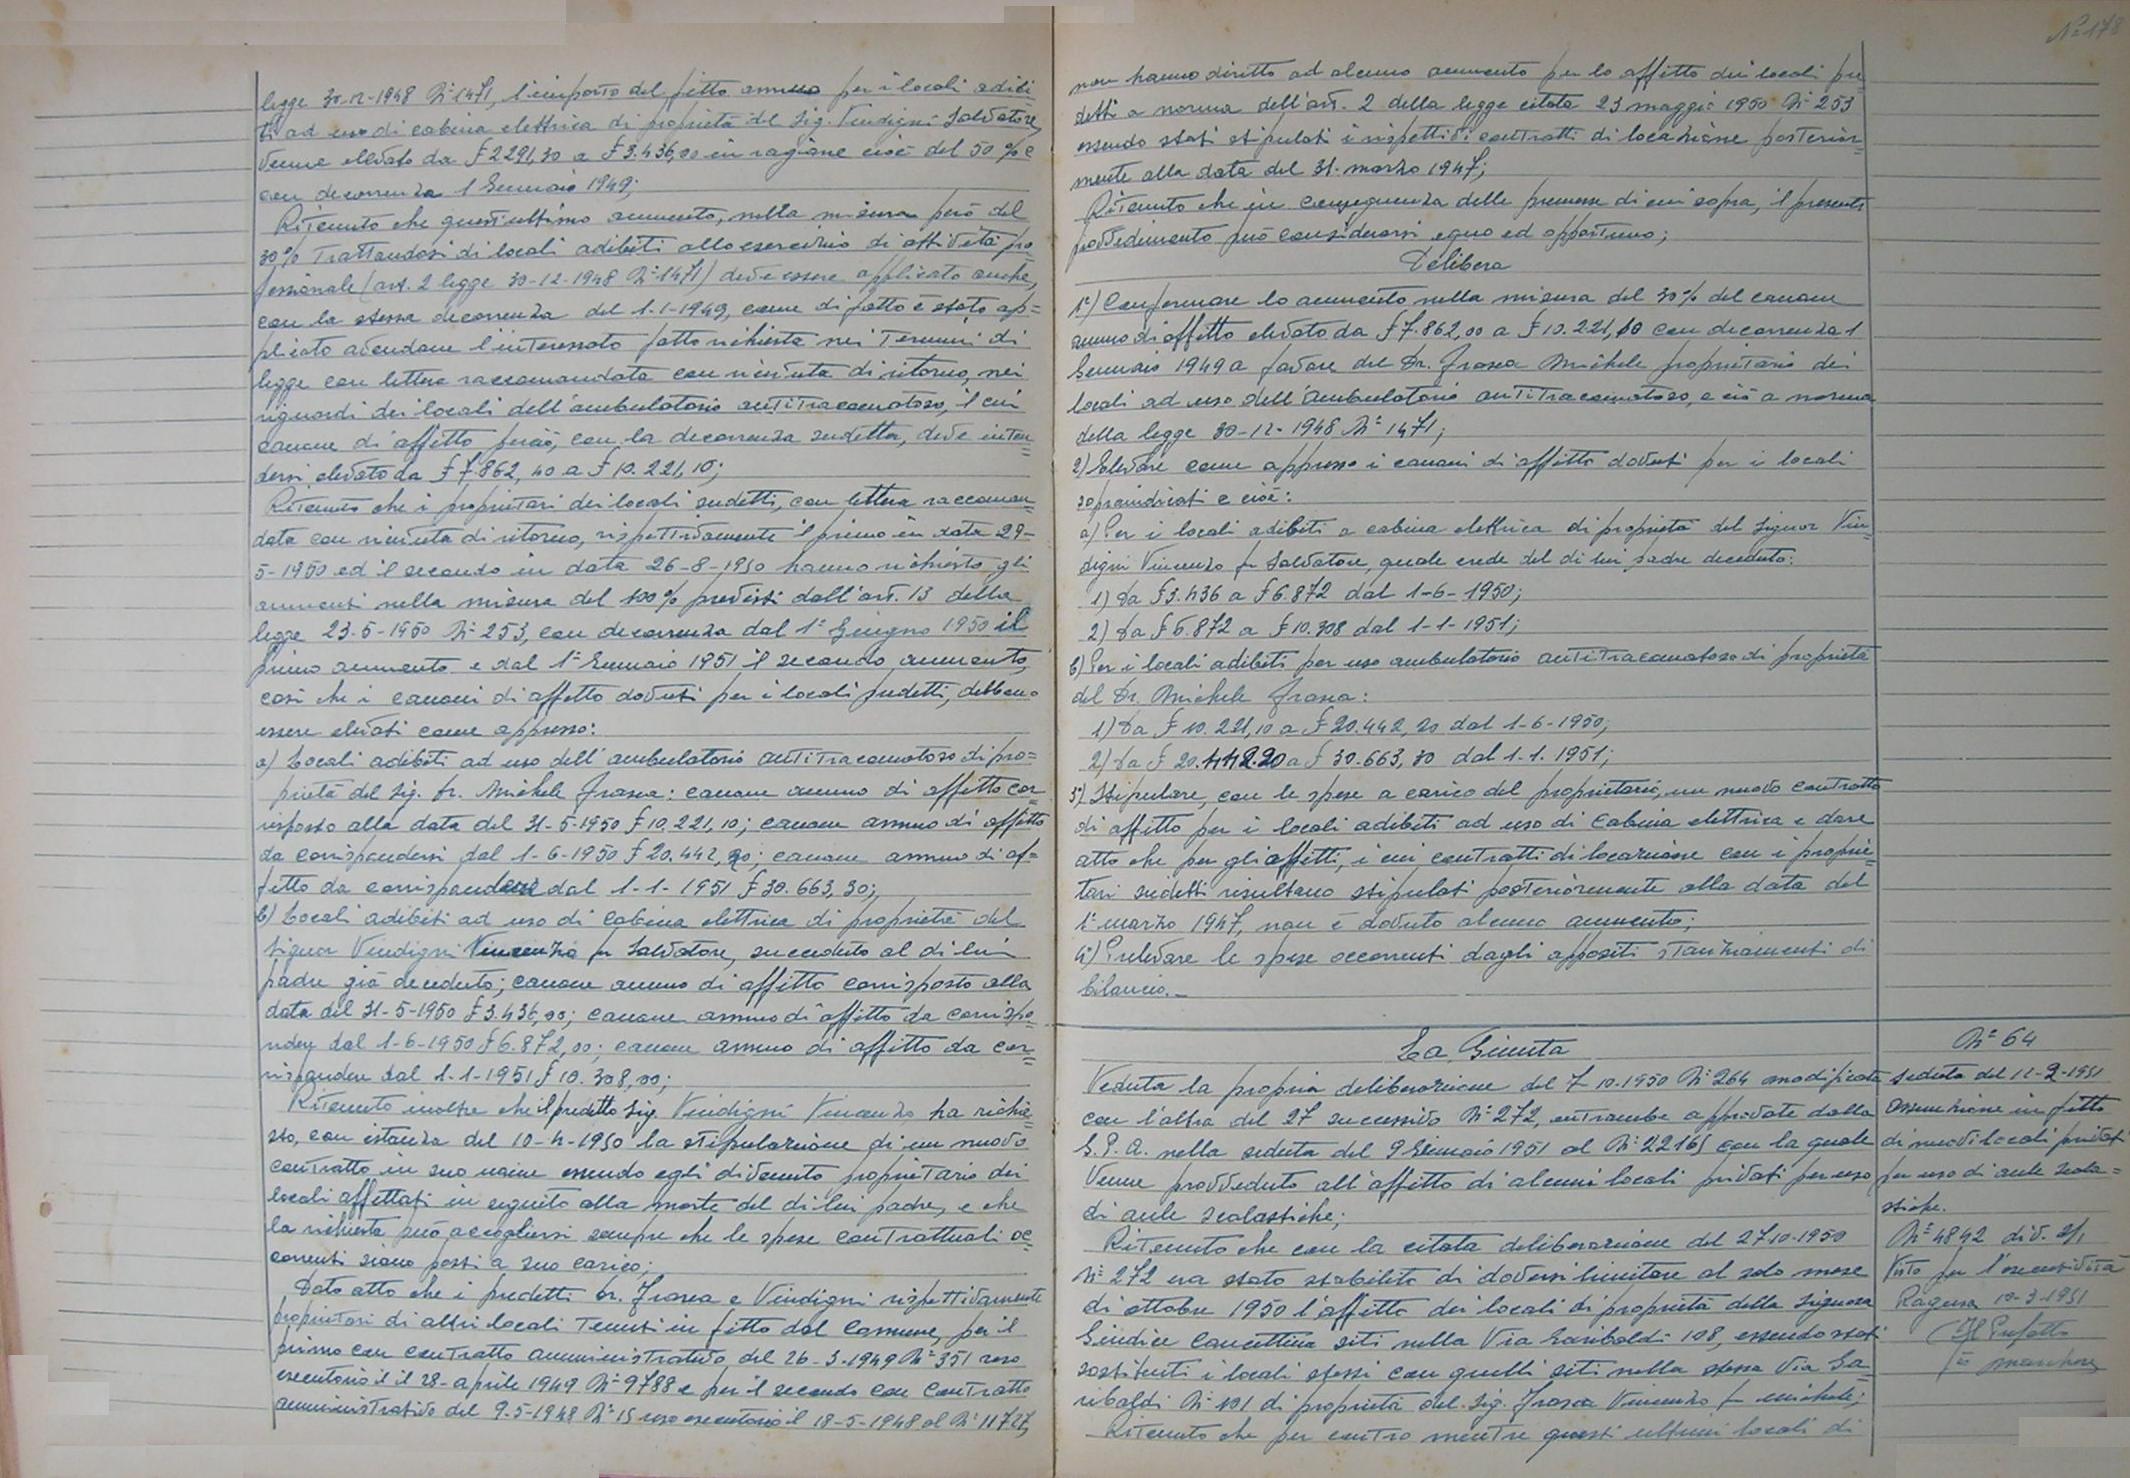 legge 30-12-1948 N° 1471, l'importo del fitto annuo per i locali adibi
ti ad uso di cabina elettrica di proprietà del Sig. Vindigni Salvatore,
venne elevato da £ 2291,30 a £ 3.436,00 in ragione cioè del 50 % e
con decorrenza 1 Gennaio 1949;
Ritenuto che quest'ultimo aumento, nella misura però del
30% trattandosi di locali adibiti allo esercizio di attività pro
fessionale (art. 2 legge 30-12-1948 N° 1471) deve essere applicato anche,
con la stessa decorrenza del 1-1-1949, come di fatto è stato ap=
plicato avendone l'interessato fatto richiesta nei termini di
legge con lettera raccomandata con ricevuta di ritorno, nei
riguardi dei locali dell'ambulatorio antitracomatoso, il cui
canone di affitto però, con la decorrenza sudetta, deve inten=
dersi elevato da £ 7.862,40 a £ 10.221,10;
Ritenuto che i proprietari dei locali sudetti, con lettera raccoman=
data con ricevuta di ritorno, rispettivamente il primo in data 29-
5-1950 ed il secondo in data 26-8-1950 hanno richiesto gli
aumenti nella misura del 100% previsti dall'art. 13 della
legge 23-5-1950 N° 253, con decorrenza dal 1° Giugno 1950 il
primo aumento e dal 1° Gennaio 1951 il secondo aumento,
così che i canoni di affitto dovuti per i locali sudetti, debbano
essere elevati come appresso:
a) Locali adibiti ad uso dell'ambulatorio antitracomatoso di pro=
prietà del Sig. Dr. Michele Frasca: canone annuo di affitto cor=
risposto alla data del 31-5-1950 £ 10.221,10; canone annuo di affitto
da corrispondersi dal 1-6-1950 £ 20.442,20; canone annuo di af=
fitto da corrispondere dal 1-1-1951 £ 30.663,30;
b) Locali adibiti ad uso di cabina elettrica di proprietà del
Signor Vindigni Vincenzo fu Salvatore, succeduto al di lui
padre già deceduto; canone annuo di affitto corrisposto alla
data del 31-5-1950 £ 3.436,00; canone annuo di affitto da corrispo=
ndere dal 1-6-1950 £ 6.872,00; canone annuo di affitto da cor=
rispondere dal 1-1-1951 £ 10.308,00;
Ritenuto inoltre che il predetto Sig. Vindigni Vincenzo ha richie=
sto, con istanza del 10-4-1950 la stipulazione di un nuovo
contratto in suo nome essendo egli divenuto proprietario dei
locali affittati in seguito alla morte del di lui padre, e che
la richiesta può accogliersi sempre che le spese contrattuali oc=
correnti siano posti a suo carico;
Dato atto che i predetti Dr. Frasca e Vindigni rispettivamente
proprietari di altri locali tenuti in fitto dal Comune, per il
primo con contratto amministrativo del 26-3-1949 N° 351 reso
esecutorio il 28-aprile 1949 N° 9788 e per il secondo con contratto
amministrativo del 9-5-1948 N° 15 reso esecutorio il 18-5-1948 al N° 11727,
N° 178
non hanno diritto ad alcuno aumento per lo affitto dei locali pre
detti a norma dell'art. 2 della legge citata 23 maggio 1950 N° 253
essendo stati stipulati i rispettivi contratti di locazione posterior=
mente alla data del 31-marzo 1947;
Ritenuto che in conseguenza delle premesse di cui sopra, il presente
provvedimento può considerarsi equo ed opportuno;
Delibera
1°) Confermare lo aumento nella misura del 30% del canone
annuo di affitto elevato da £ 7.862,00 a £ 10.221,10 con decorrenza 1
Gennaio 1949 a favore del Dr. Frasca Michele proprietario dei
locali ad uso dell'ambulatorio antitracomatoso, e ciò a norma
della legge 30-12-1948 N° 1471;
2) Elevare come appresso i canoni di affitto dovuti per i locali
sopraindicati e cioè:
a) Per i locali adibiti a cabina elettrica di proprietà del Signor Vin=
digni Vincenzo fu Salvatore, quale erede del di lui padre deceduto:
1) Da £ 3.436 a £ 6.872 dal 1-6-1950;
2) Da £ 6.872 a £ 10.308 dal 1-1-1951;
b) Per i locali adibiti per uso ambulatorio antitracomatoso di proprietà
del Dr. Michele Frasca:
1) Da £ 10.221,10 a £ 20.442,20 dal 1-6-1950;
2) Da £ 20.442.20 a £ 30.663,30 dal 1-1-1951;
3°) Stipulare, con le spese a carico del proprietario, un nuovo contratto
di affitto per i locali adibiti ad uso di Cabina elettrica e dare
atto che per gli affitti, i cui contratti di locazione con i proprie=
tari sudetti risultano stipulati posteriormente alla data del
1° marzo 1947, non è dovuto alcuno aumento;
4°) Prelevare le spese occorrenti dagli appositi stanziamenti di
bilancio.-
La Giunta
Veduta la propria deliberazione del 7-10-1950 N° 264 modificata
con l'altra del 27 successivo N° 272, entrambe approvate dalla
G. P. A. nella seduta del 9 Gennaio 1951 al N° 22165 con la quale
venne provveduto all'affitto di alcuni locali privati per uso
di aule scolastiche;
Ritenuto che con la citata deliberazione del 27-10-1950
N° 272 era stato stabilito di doversi limitare al solo mese
di ottobre 1950 l'affitto dei locali di proprietà della Signora
Giudice Concettina siti nella Via Garibaldi 108, essendo stati
sostituiti i locali stessi con quelli siti nella stessa Via Ga
ribaldi N° 101 di proprietà del Sig. Frasca Vincenzo fu Michele;
Ritenuto che per contro mentre questi ultimi locali di
N° 64
Seduta del 11-2-1951
Assunzione in fitto
di nuovi locali privati
per uso di aule scola=
stiche.
N° 4842 div.
Visto per l'esecutività
Ragusa 10-3-1951
Il Prefetto